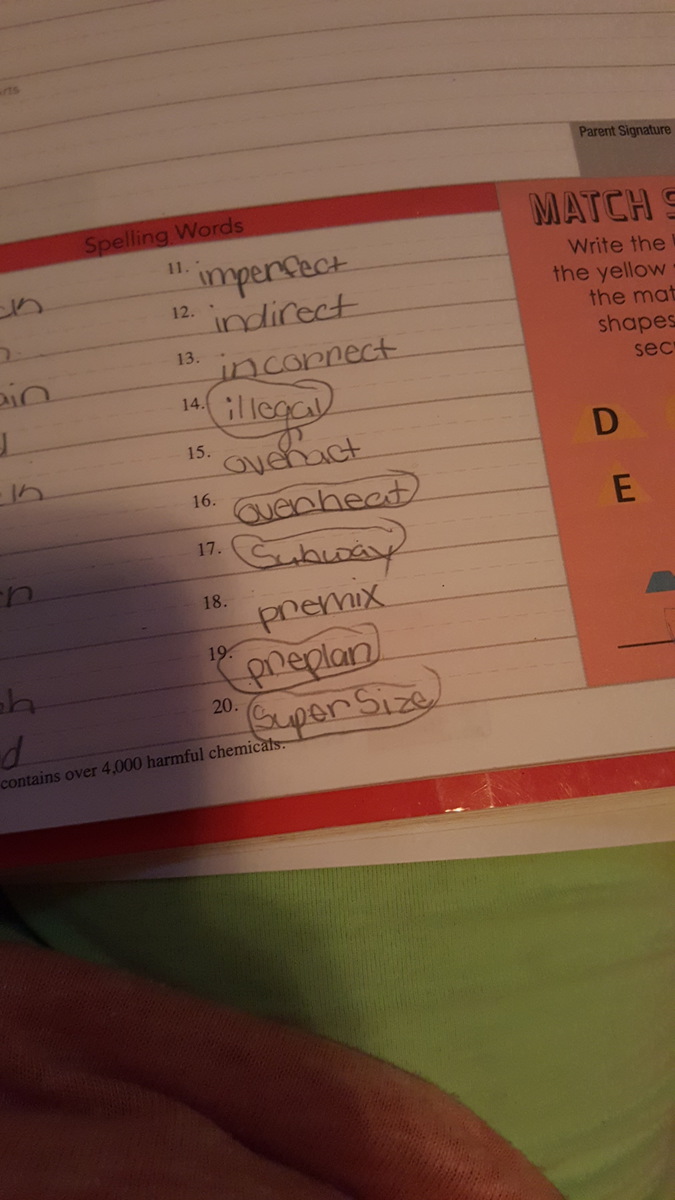 Parent Signature
Spelling Words
11. imperfect
12. indirect
13. inconnect
14. illegal
15. overact
16. overheat
17. Subway
18. premix
19. preplan
20. SuperSize
contains over 4,000 harmful chemicals.
MATCH
Write the
the yellow
the mat
shapes
sec
D
E